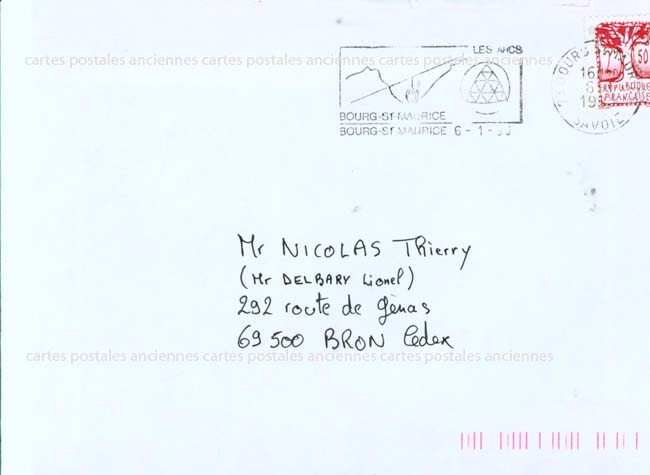 cartes postales anciennes cartes postales anciennes cartes postales anciennes
LES ARCS
BOURG-St-MAURICE
BOURG-St MAURICE 6 - 1 -
16
6
SAVOIE
50
REPUBLIQUE
FRANCAISE
Mr NICOLAS Thierry
(Mr DELBARY Lionel)
292 route de Gênas
69 500 BRON Cedex
cartes postales anciennes cartes postales anciennes cartes postales anciennes